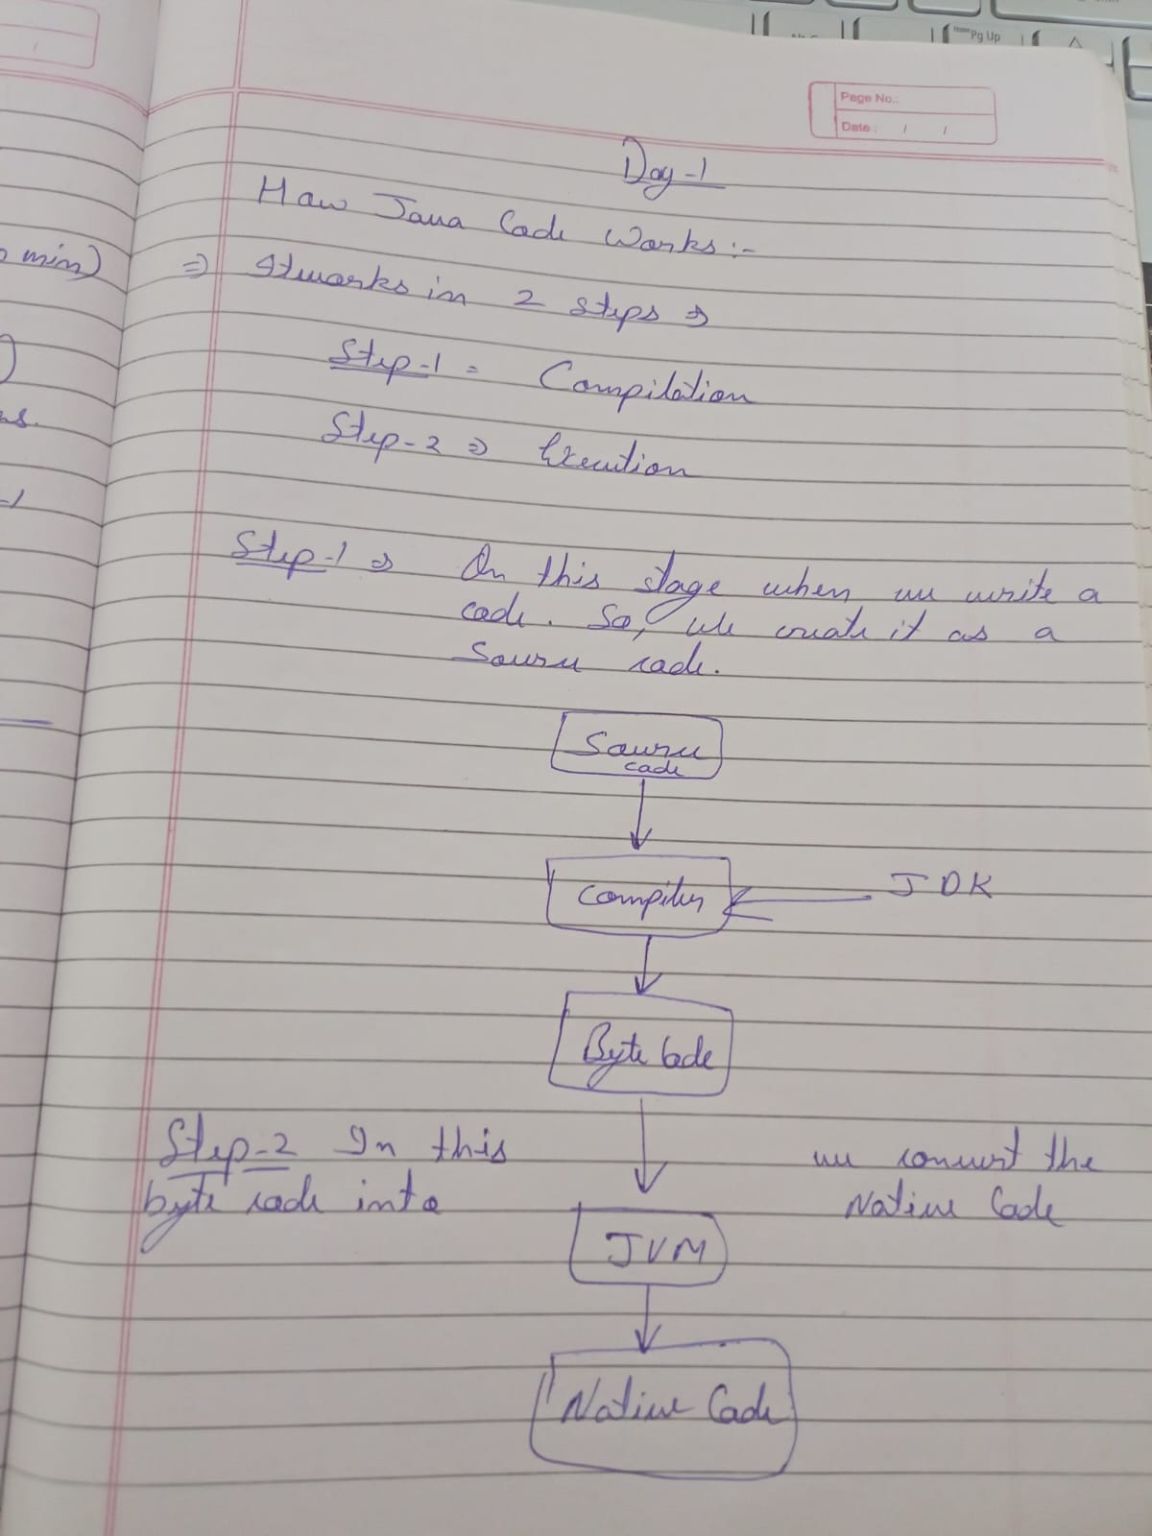 Pg Up
Page No.:
Date: / /
Day-1
How Java Code Works:-
min)
⇒ It works in 2 steps ⇒
Step-1 = Compilation
Step-2 ⇒ Execution
Step-1 ⇒ On this stage when we write a
code. So, we create it as a
Source code.
Source
code
Compiler
JDK
Byte Code
Step-2 In this we convert the
byte code into Native Code
JVM
Native Code